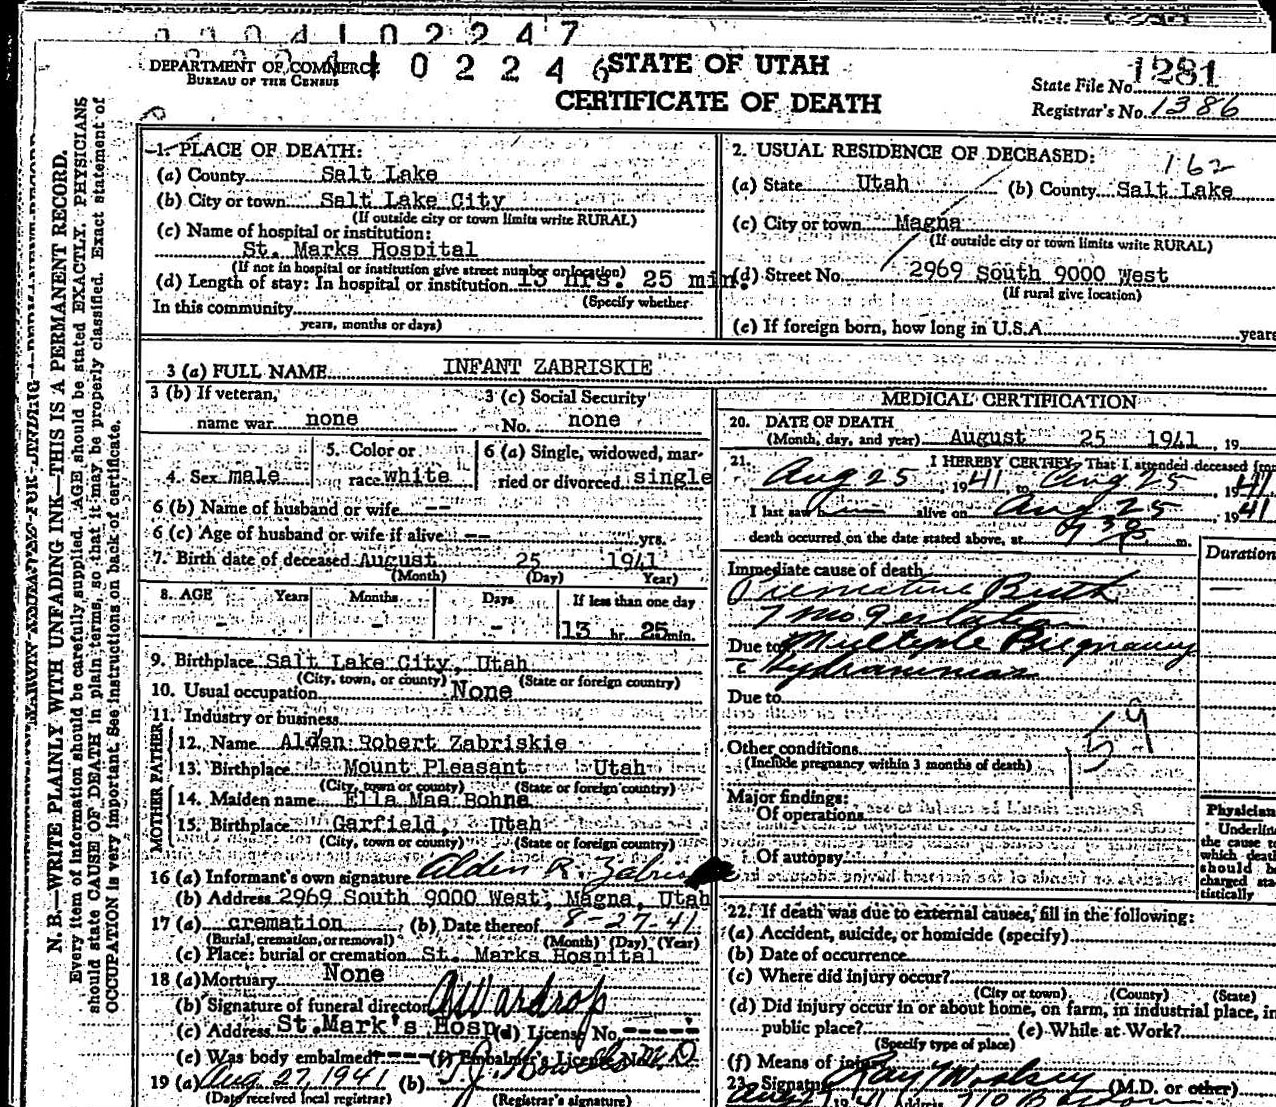 0004102247
0004102246
DEPARTMENT OF COMMERCE
BUREAU OF THE CENSUS
STATE OF UTAH
CERTIFICATE OF DEATH
State File No. 1281
Registrar's No. 1386
N. B.—WRITE PLAINLY WITH UNFADING INK—THIS IS A PERMANENT RECORD.
Every item of information should be carefully supplied. AGE should be stated EXACTLY. PHYSICIANS
should state CAUSE OF DEATH in plain terms, so that it may be properly classified. Exact statement of
OCCUPATION is very important. See instructions on back of certificate.
1. PLACE OF DEATH:
(a) County Salt Lake
(b) City or town Salt Lake City
(If outside city or town limits write RURAL)
(c) Name of hospital or institution:
St. Marks Hospital
(If not in hospital or institution give street number or location)
(d) Length of stay: In hospital or institution 13 hrs. 25 min.
(Specify whether
In this community
years, months or days)
2. USUAL RESIDENCE OF DECEASED:
162
(a) State Utah (b) County Salt Lake
(c) City or town Magna
(If outside city or town limits write RURAL)
(d) Street No. 2969 South 9000 West
(If rural give location)
(e) If foreign born, how long in U.S.A. years
3 (a) FULL NAME INFANT ZABRISKIE
3 (b) If veteran, name war none
3 (c) Social Security No. none
4. Sex male
5. Color or race white
6 (a) Single, widowed, married or divorced single
6 (b) Name of husband or wife --
6 (c) Age of husband or wife if alive -- yrs.
7. Birth date of deceased August 25 1941
(Month) (Day) Year)
8. AGE Years Months Days If less than one day
- - - 13 hr. 25 min.
9. Birthplace Salt Lake City, Utah
(City, town, or county) (State or foreign country)
10. Usual occupation None
11. Industry or business
FATHER
12. Name Alden Robert Zabriskie
13. Birthplace Mount Pleasant Utah
(City, town or county) (State or foreign country)
MOTHER
14. Maiden name Ella Mae Bohne
15. Birthplace Garfield, Utah
(City, town or county) (State or foreign country)
16 (a) Informant's own signature Alden R. Zabriskie
(b) Address 2969 South 9000 West, Magna, Utah
17 (a) cremation (b) Date thereof 8-27-41
(Burial, cremation, or removal) (Month) (Day) (Year)
(c) Place: burial or cremation St. Marks Hospital
18 (a) Mortuary None
(b) Signature of funeral director A Wardrop
(c) Address St. Mark's Hosp (d) License No. ----
(e) Was body embalmed? --- (f) Embalmer's License No.
19 (a) Aug 27, 1941 (b) M.D
(Date received local registrar) (Registrar's signature)
MEDICAL CERTIFICATION
20. DATE OF DEATH
(Month, day, and year) August 25 1941, 19
21. I HEREBY CERTIFY, That I attended deceased from
Aug 25, 1941, to Aug 25, 1941
I last saw him alive on Aug 25, 1941
death occurred on the date stated above, at 9 38 P. m.
Duration
Immediate cause of death
Premature Birth —
7 mo gestation
Due to Multiple Pregnancy
c Hydramnios
Due to
159
Other conditions
(Include pregnancy within 3 months of death)
Major findings:
Of operations
Of autopsy
Physician
Underline
the cause to
which death
should be
charged sta-
tistically
22. If death was due to external causes, fill in the following:
(a) Accident, suicide, or homicide (specify)
(b) Date of occurrence
(c) Where did injury occur?
(City or town) (County) (State)
(d) Did injury occur in or about home, on farm, in industrial place, in
public place? (e) While at Work?
(Specify type of place)
(f) Means of injury
23. Signature (M.D. or other)
Aug 27 1941 Address